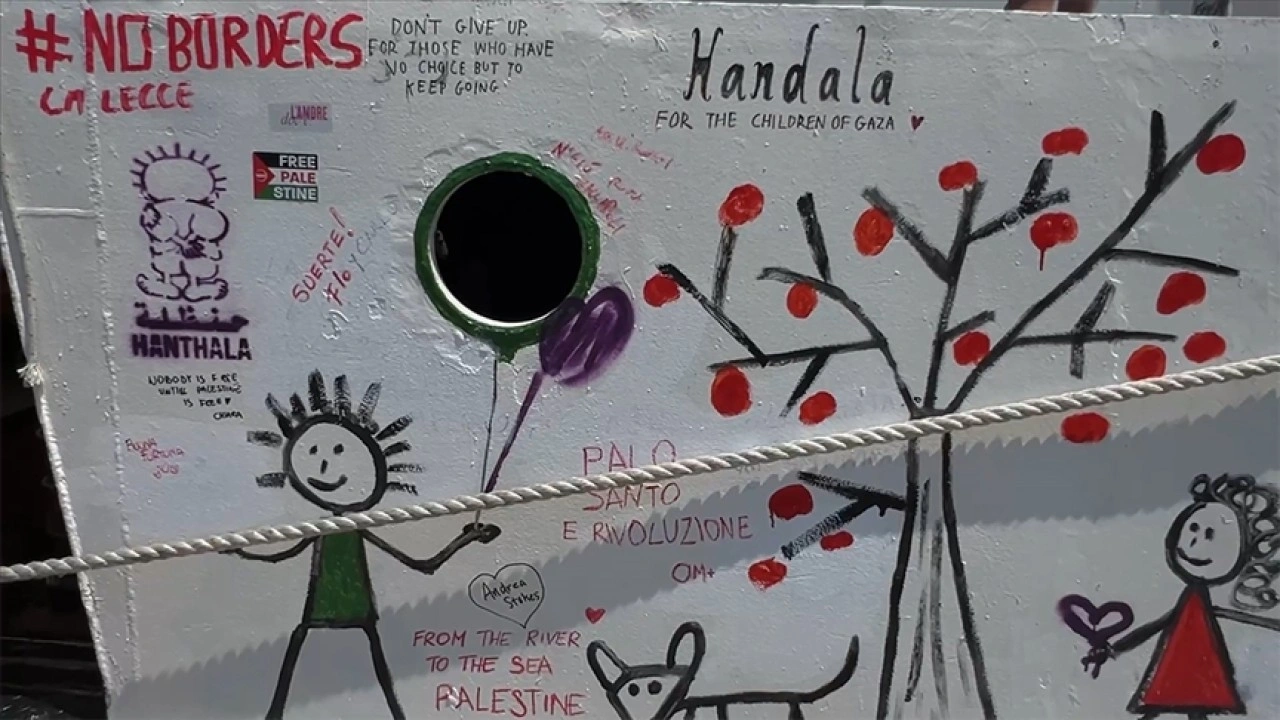 #NO BORDERS
LECCE
DON'T GIVE UP
FOR THOSE WHO HAVE
NO CHOICE BUT TO
KEEP GOING
Handala
FOR THE CHILDREN OF GAZA
L'ANDRE
FREE
PALE
STINE
SUERTE!
حنظلة
HANTHALA
NOBODY IS FREE
UNTIL PALESTINE
IS FREE
CHIARA
BUONA
FORTUNA
PALO
SANTO
E RIVOLUZIONE
OM+
Andrea
Stokes
FROM THE RIVER
TO THE SEA
PALESTINE